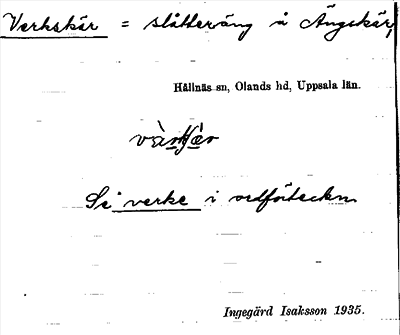 Verkskär = slåtteräng å Ängskär,
Hållnäs sn, Olands hd, Uppsala län.
Se verke i ordförteckn.
Ingegärd Isaksson 1935.